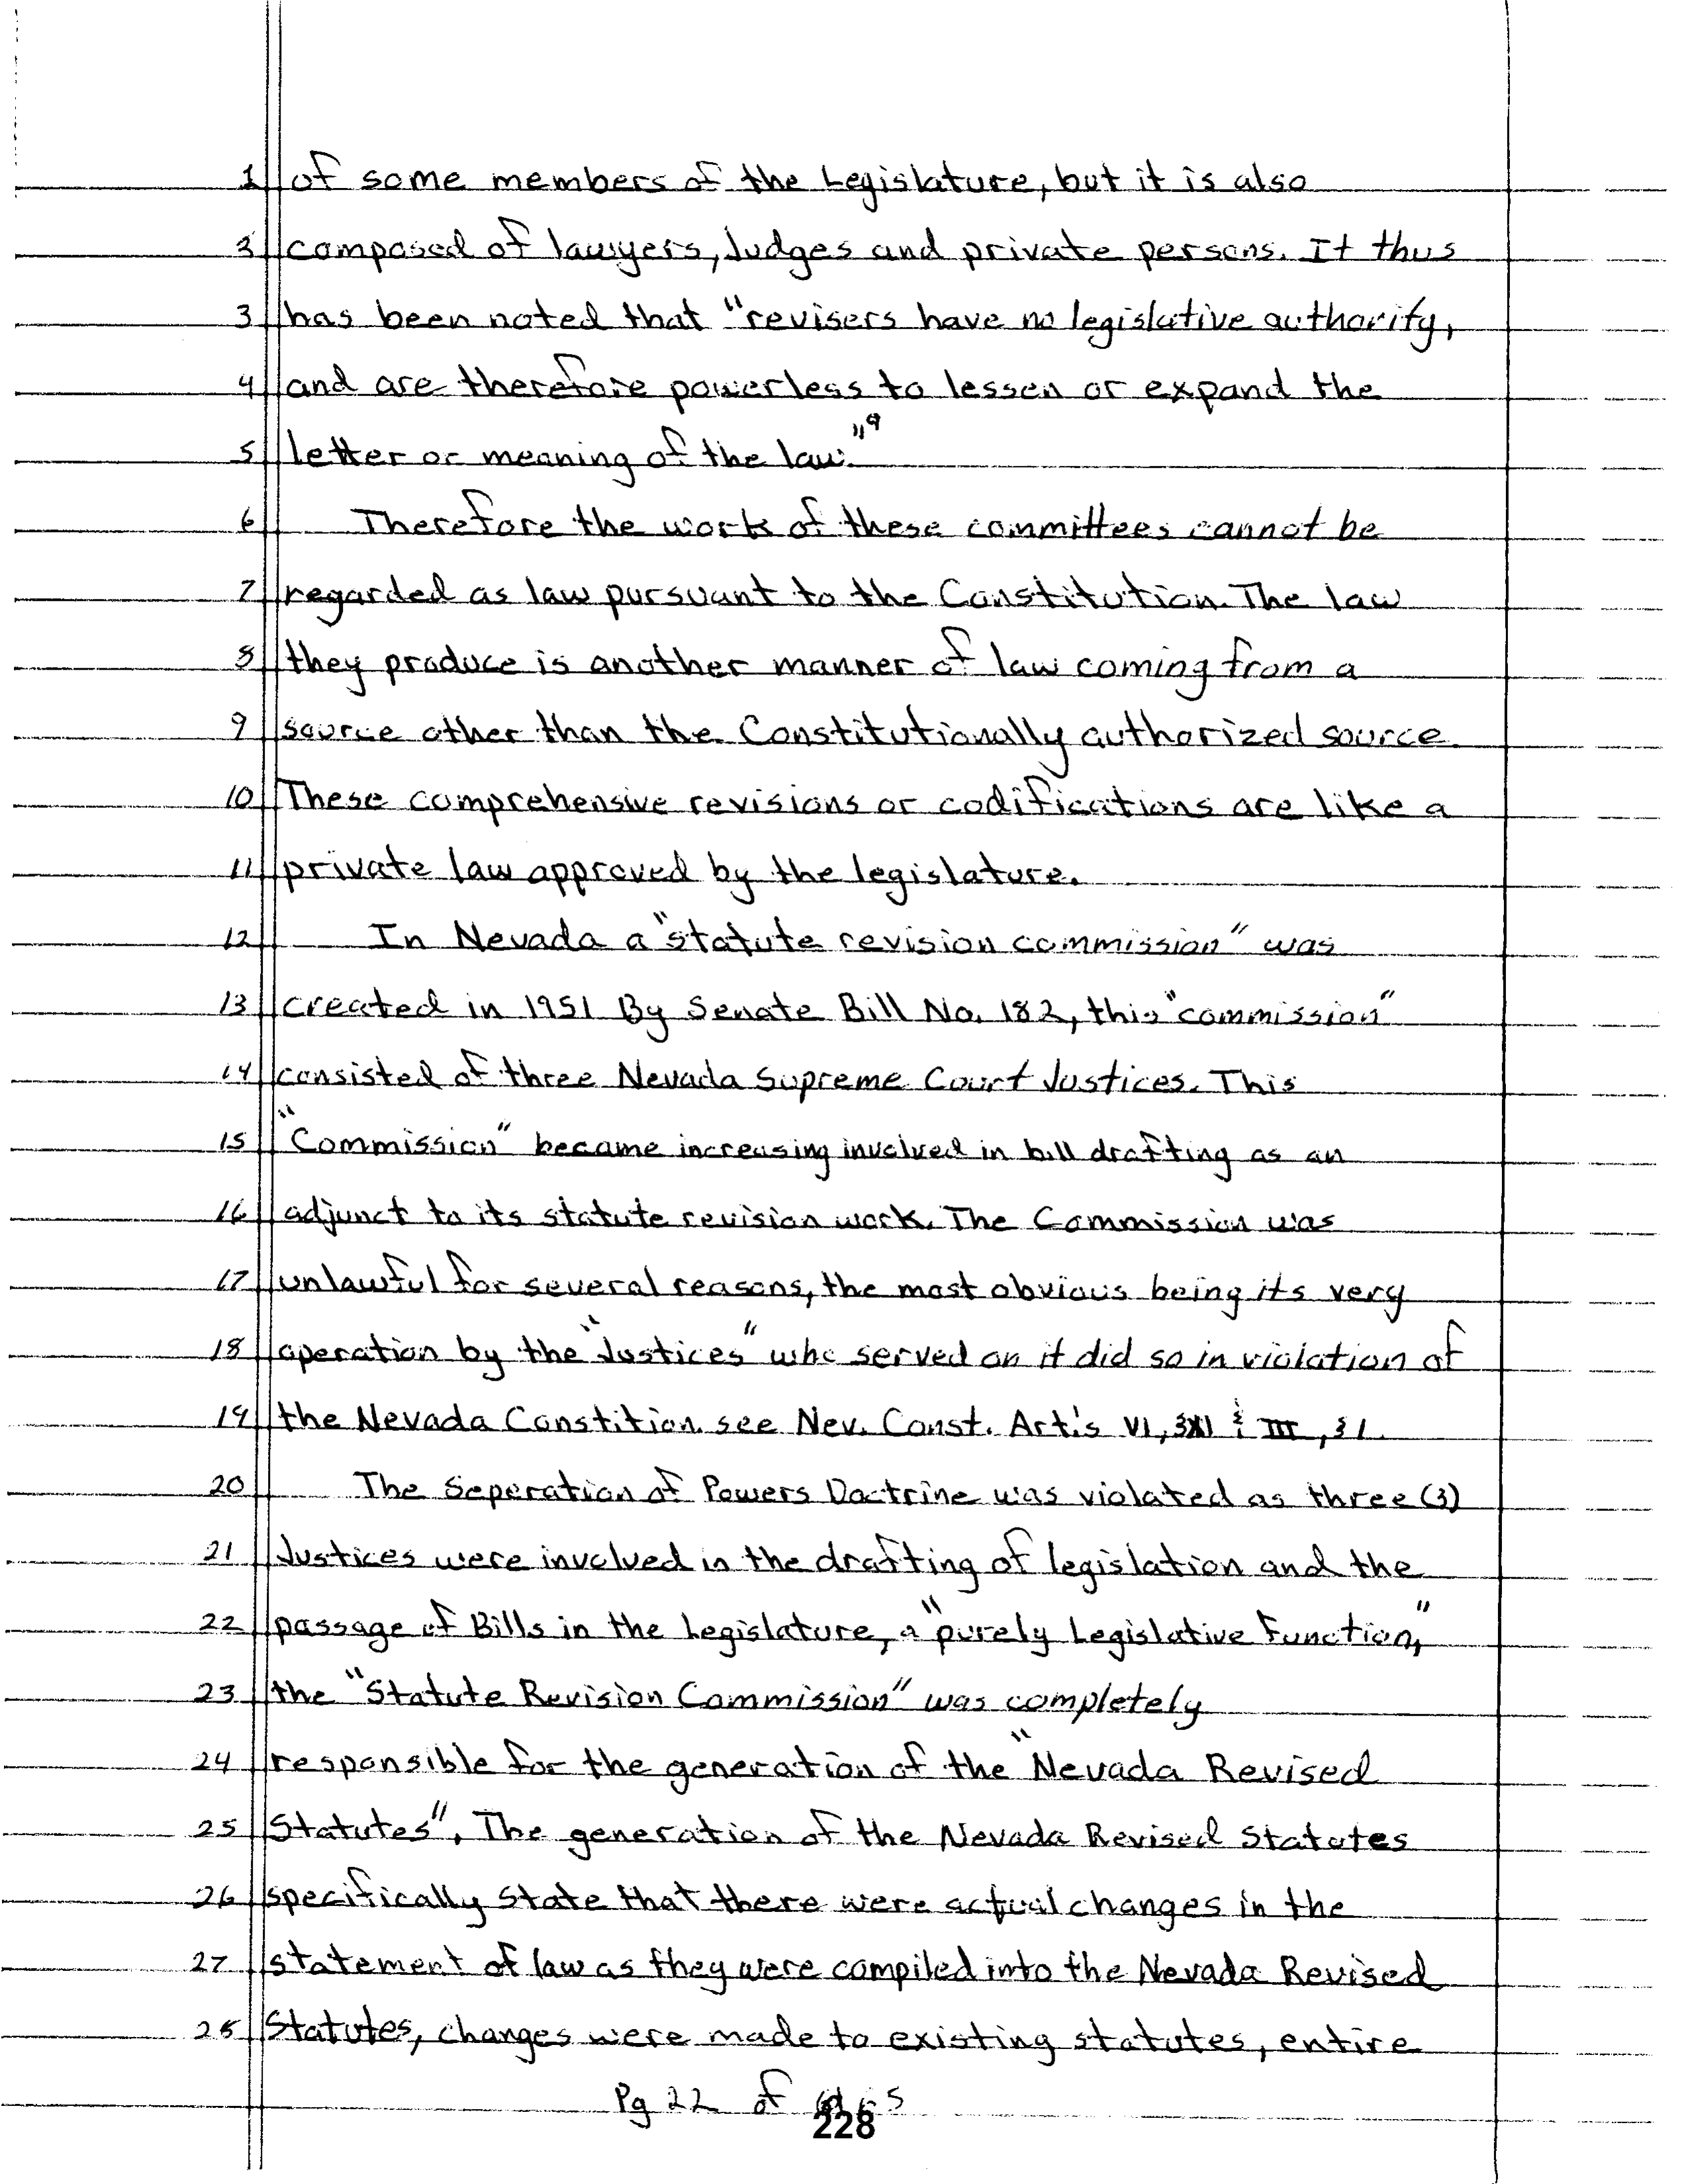 1 of some members of the Legislature, but it is also
3 composed of lawyers, Judges and private persons. It thus
3 has been noted that "revisers have no legislative authority,
4 and are therefore powerless to lessen or expand the
5 letter or meaning of the law."9
6 Therefore the work of these committees cannot be
7 regarded as law pursuant to the Constitution. The law
8 they produce is another manner of law coming from a
9 source other than the Constitutionally authorized source.
10 These comprehensive revisions or codifications are like a
11 private law approved by the legislature.
12 In Nevada a "statute revision commission" was
13 created in 1951 By Senate Bill No. 182, this "commission"
14 consisted of three Nevada Supreme Court Justices. This
15 "Commission" became increasing involved in bill drafting as an
16 adjunct to its statute revision work. The Commission was
17 unlawful for several reasons, the most obvious being its very
18 operation by the "Justices" who served on it did so in violation of
19 the Nevada Constition. see Nev. Const. Art.'s VI, § XI & III, § 1.
20 The Seperation of Powers Doctrine was violated as three (3)
21 Justices were involved in the drafting of legislation and the
22 passage of Bills in the Legislature, a "purely Legislative Function,"
23 the "Statute Revision Commission" was completely
24 responsible for the generation of the "Nevada Revised
25 Statutes". The generation of the Nevada Revised Statutes
26 specifically State that there were actual changes in the
27 statement of law as they were compiled into the Nevada Revised
28 Statutes, changes were made to existing statutes, entire
Pg 22 of
228